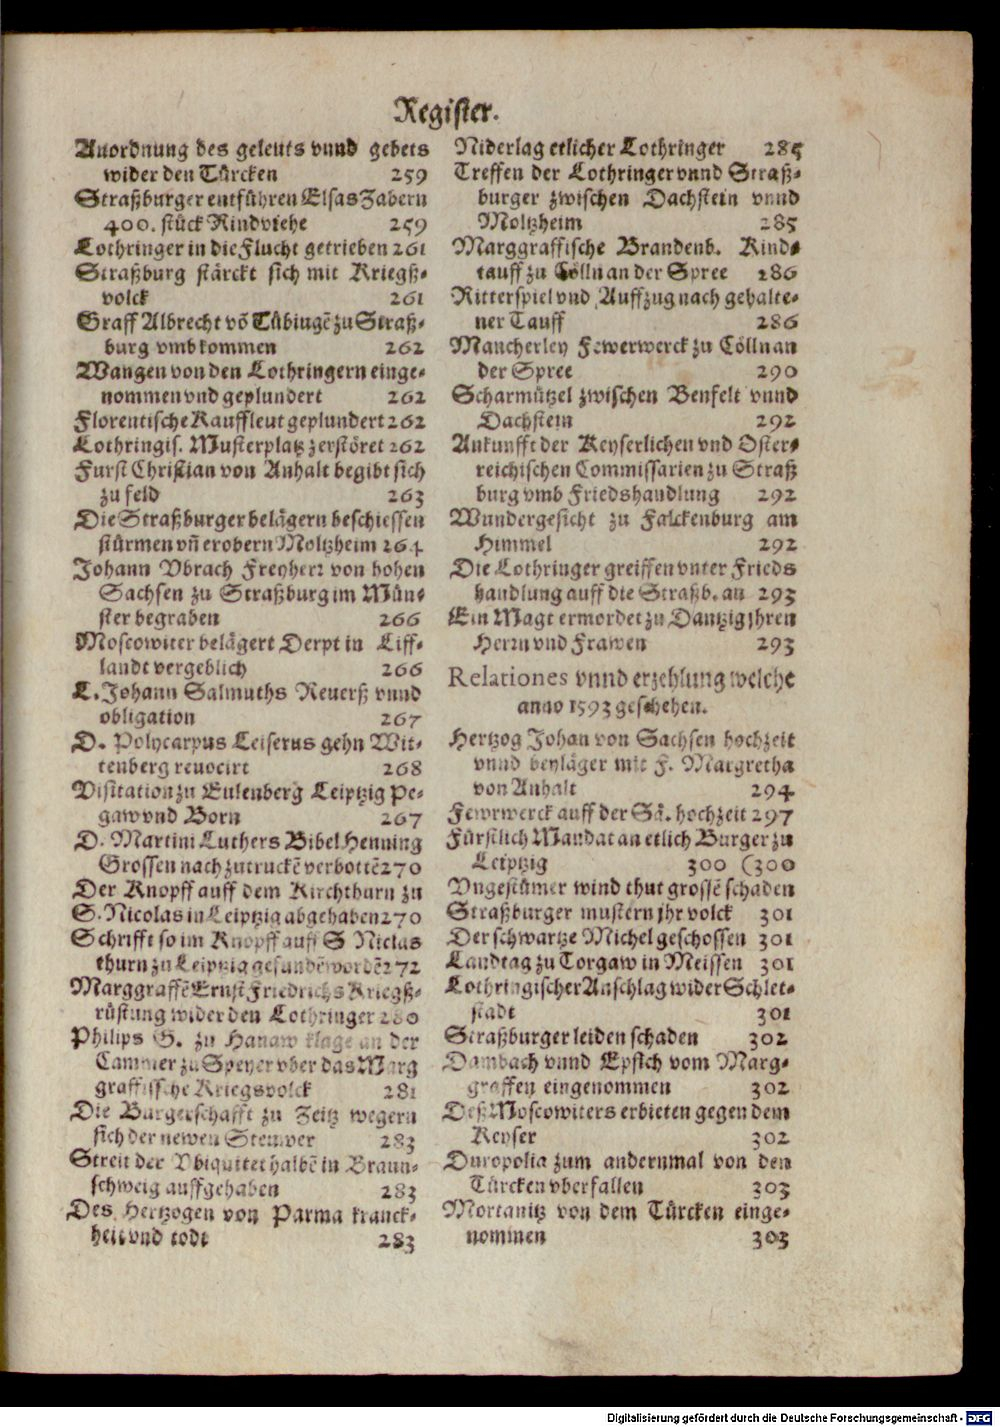 Register.
Anordnung des geleuts vnnd gebets
wider den Türcken 259
Straßburger entführen Elsas Zabern
400. stück Rindviehe 259
Lothringer in die Flucht getrieben 261
Straßburg stärckt sich mit Kriegß-
volck 261
Graff Albrecht vō Tübingē zu Straß-
burg vmbkommen 262
Wangen von den Lothringern einge-
nommen vnd geplundert 262
Florentische Kauffleut geplundert 262
Lothringis. Musterplatz zerstöret 262
Furst Christian von Anhalt begibt sich
zu feld 263
Die Straßburger belägern beschiessen
stürmen vn̄ erobern Moltzheim 264
Johann Vbrach Freyherr von hohen
Sachsen zu Straßburg im Mün-
ster begraben 266
Moscowiter belägert Derpt in Liff-
landt vergeblich 266
L. Johann Salmuths Reuerß vnnd
obligation 267
D. Polycarpus Leiserus gehn Wit-
tenberg reuocirt 268
Visitation zu Eulenberg Leiptzig Pe-
gaw vnd Born 267
D. Martini Luthers Bibel Henning
Grossen nach zutruckē verbottē 270
Der Knopff auff dem Kirchthurn zu
S. Nicolas in Leiptzig abgehaben 270
Schrifft so im Knopff auff S Niclas
thurn zu Leiptzig gefundē wordē 272
Marggraffē Ernst Friedrichs Kriegß-
rüstung wider den Lothringer 280
Philips G. zu Hanaw klage an der
Cammer zu Speyer vber das Marg
graffische Kriegsvolck 281
Die Burgerschafft zu Zeitz wegern
sich der newen Stewer 283
Streit der Vbiquitet halbē in Braun-
schweig auffgehaben 283
Des Hertzogen von Parma kranck-
heit vnd todt 283
Niderlag etlicher Lothringer 285
Treffen der Lothringer vnnd Straß-
burger zwischen Dachstein vnnd
Moltzheim 285
Marggraffische Brandenb. Kind-
tauff zu Cölln an der Spree 286
Ritterspiel vnd Auffzug nach gehalte-
ner Tauff 286
Mancherley Fewerwerck zu Cölln an
der Spree 290
Scharmützel zwischen Benfelt vnnd
Dachstein 292
Ankunfft der Keyserlichen vnd Oster-
reichischen Commissarien zu Straß
burg vmb Friedshandlung 292
Wundergesicht zu Falckenburg am
Himmel 292
Die Lothringer greiffen vnter Frieds
handlung auff die Straßb. an 293
Ein Magt ermordet zu Dantzig jhren
Herrn vnd Frawen 293
Relationes vnnd erzehlung welche
anno 1593 geschehen.
Hertzog Johan von Sachsen hochzeit
vnnd beyläger mit F. Margretha
von Anhalt 294
Fewrwerck auff der Sä. hochzeit 297
Fürstlich Mandat an etlich Burger zu
Leiptzig 300 (300
Vngestümer wind thut grossē schaden
Straßburger mustern jhr volck 301
Der schwartze Michel geschossen 301
Landtag zu Torgaw in Meissen 301
Lothringischer Anschlag wider Schlet-
stadt 301
Straßburger leiden schaden 302
Dambach vnnd Epfich vom Marg-
graffen eingenommen 302
Deß Moscowiters erbieten gegen dem
Keyser 302
Duropolia zum andernmal von den
Türcken vberfallen 303
Mortanitz von dem Türcken einge-
nommen 303
Digitalisierung gefördert durch die Deutsche Forschungsgemeinschaft - DFG